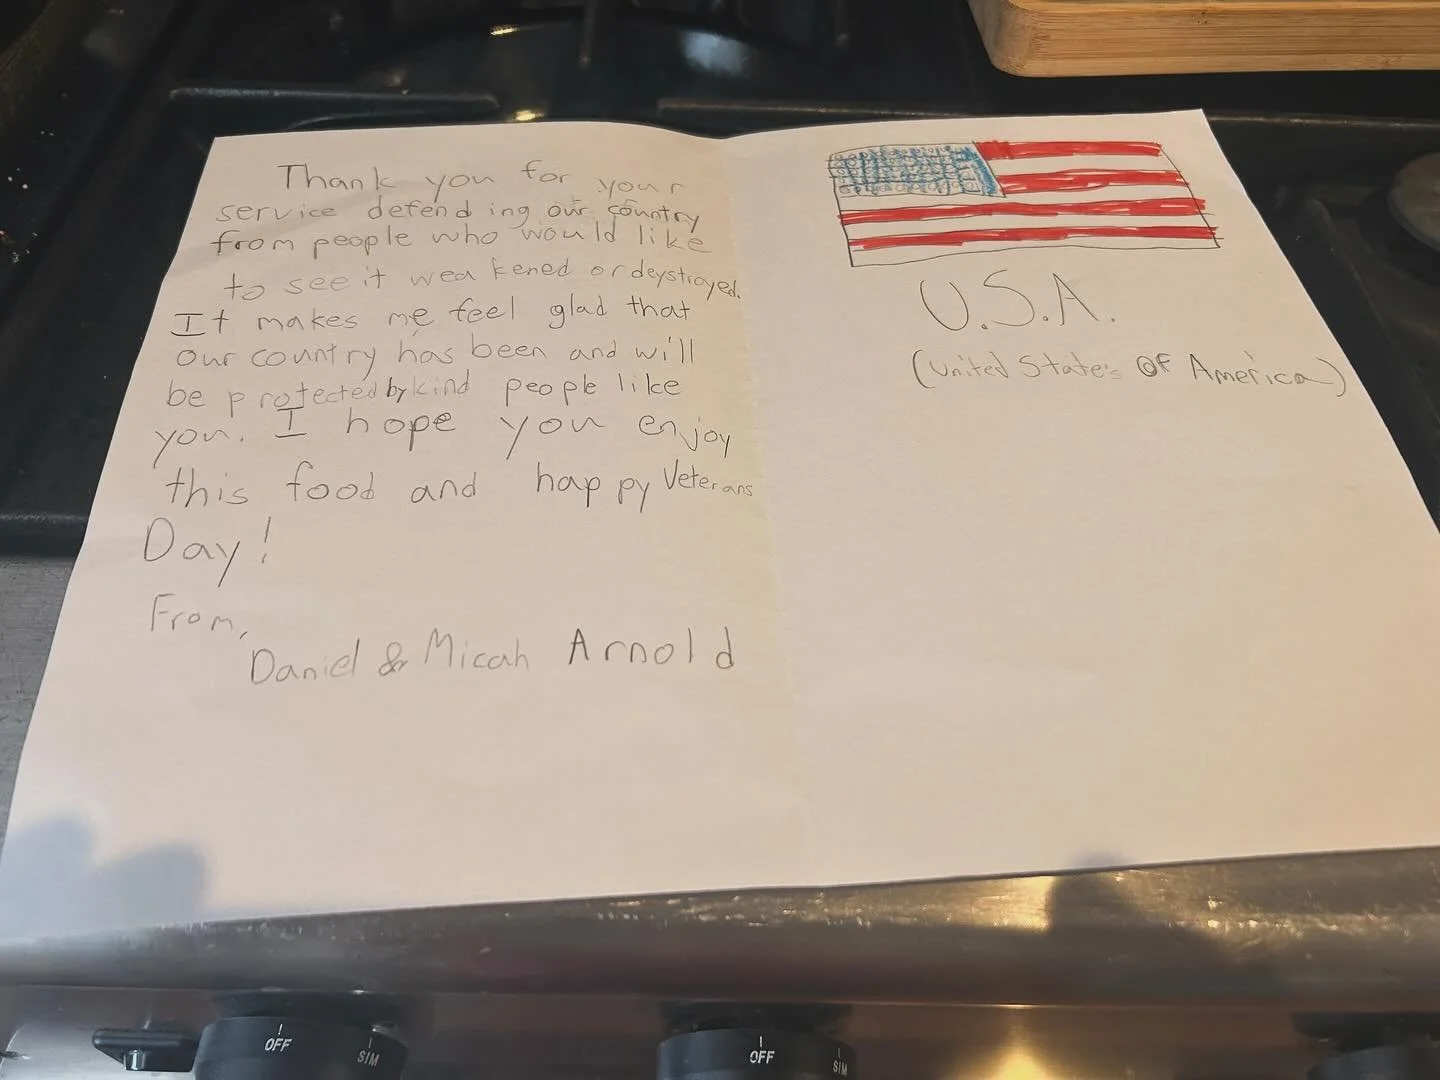 Thank you for your
service defending our country
from people who would like
to see it weakened or deystroyed.
It makes me feel glad that
our country has been and will
be protected by kind people like
you. I hope you enjoy
this food and happy Veterans
Day!
From,
Daniel & Micah Arnold
U.S.A.
(United State's OF America)
OFF
SIM
OFF
SIM